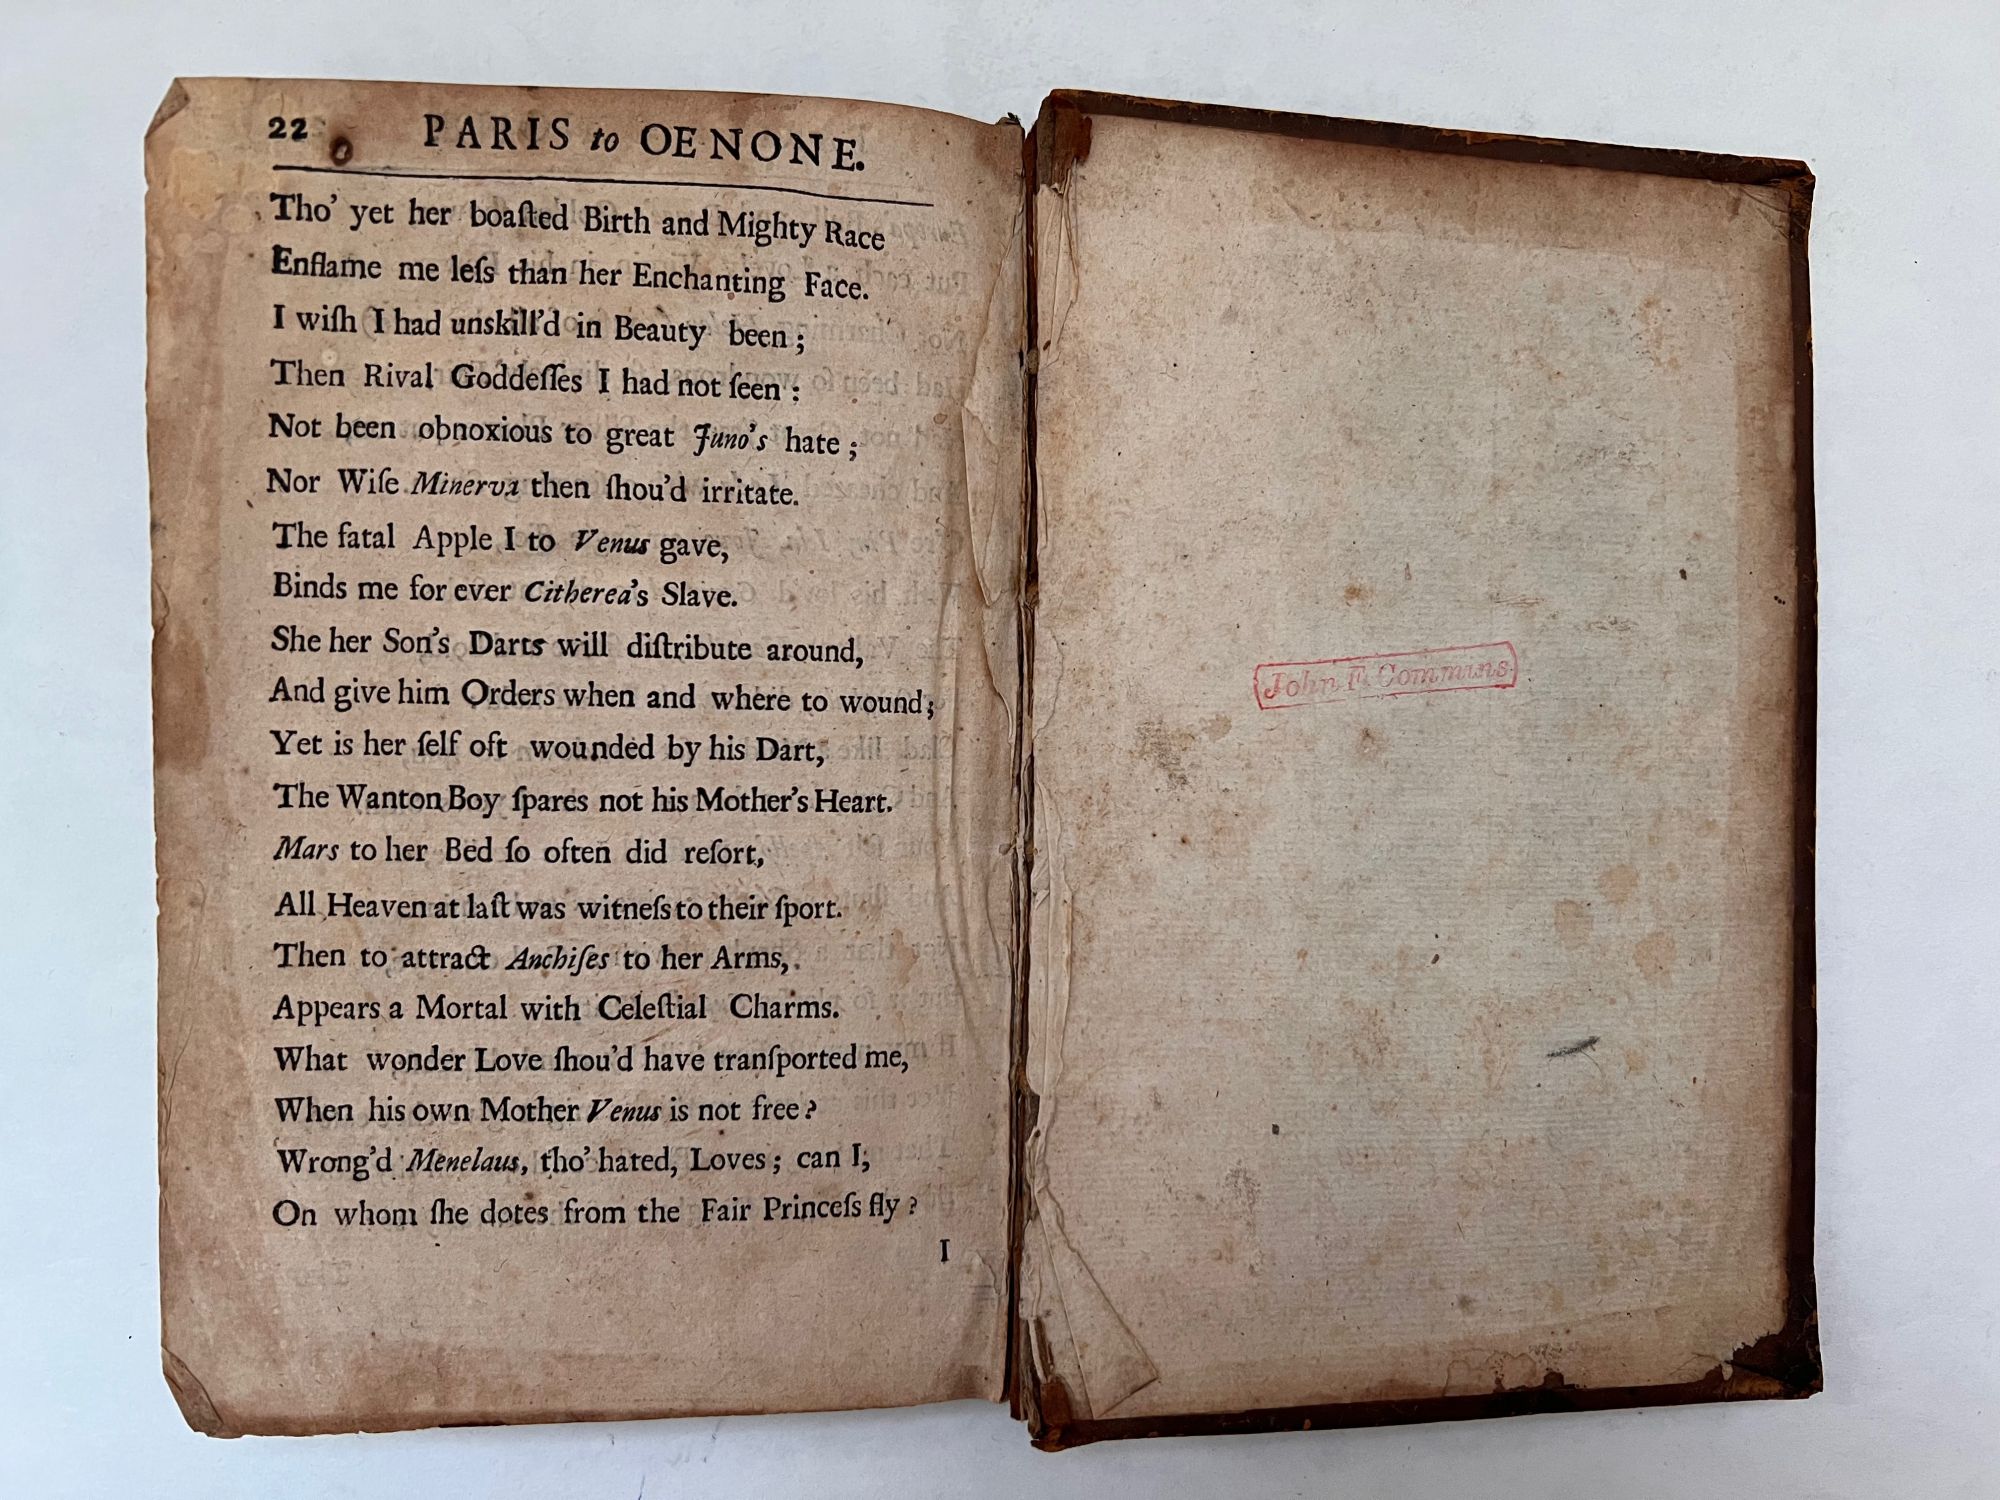 22 PARIS to OENONE.
Tho' yet her boaſted Birth and Mighty Race
Enflame me leſs than her Enchanting Face.
I wiſh I had unskill'd in Beauty been;
Then Rival Goddeſſes I had not ſeen:
Not been obnoxious to great Juno's hate;
Nor Wiſe Minerva then ſhou'd irritate.
The fatal Apple I to Venus gave,
Binds me for ever Citherea's Slave.
She her Son's Darts will diſtribute around,
And give him Orders when and where to wound;
Yet is her ſelf oft wounded by his Dart,
The Wanton Boy ſpares not his Mother's Heart.
Mars to her Bed ſo often did reſort,
All Heaven at laſt was witneſs to their ſport.
Then to attract Anchiſes to her Arms,
Appears a Mortal with Celeſtial Charms.
What wonder Love ſhou'd have tranſported me,
When his own Mother Venus is not free?
Wrong'd Menelaus, tho' hated, Loves; can I,
On whom ſhe dotes from the Fair Princeſs fly?
I
John F. Commins